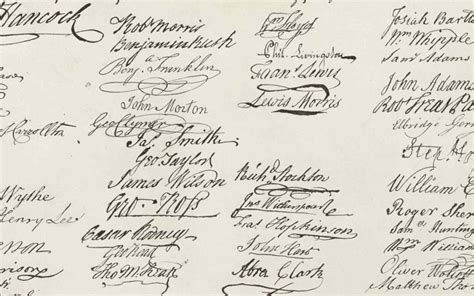 Hancock
Wythe
Henry Lee
Robt Morris
Benjamin Rush
Benj. Franklin
John Morton
Geo Clymer
Jas. Smith
Geo. Taylor
James Wilson
Geo. Ross
Caesar Rodney
Geo Read
Tho M:Kean
Phil. Livingston
Frans. Lewis
Lewis Morris
Richd. Stockton
Jno Witherspoon
Fras. Hopkinson
John Hart
Abra Clark
Josiah Bart
Wm Whipple
Saml Adams
John Adams
Robt Treat P
Elbridge Ger
Step. H
William E
Roger She
Saml Hunting
Wm. William
Oliver Wolcot
Matthew Thor